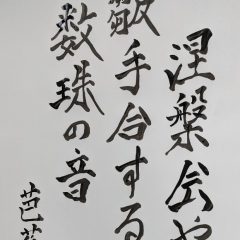 涅槃会や
皺手合する
数珠の音
芭